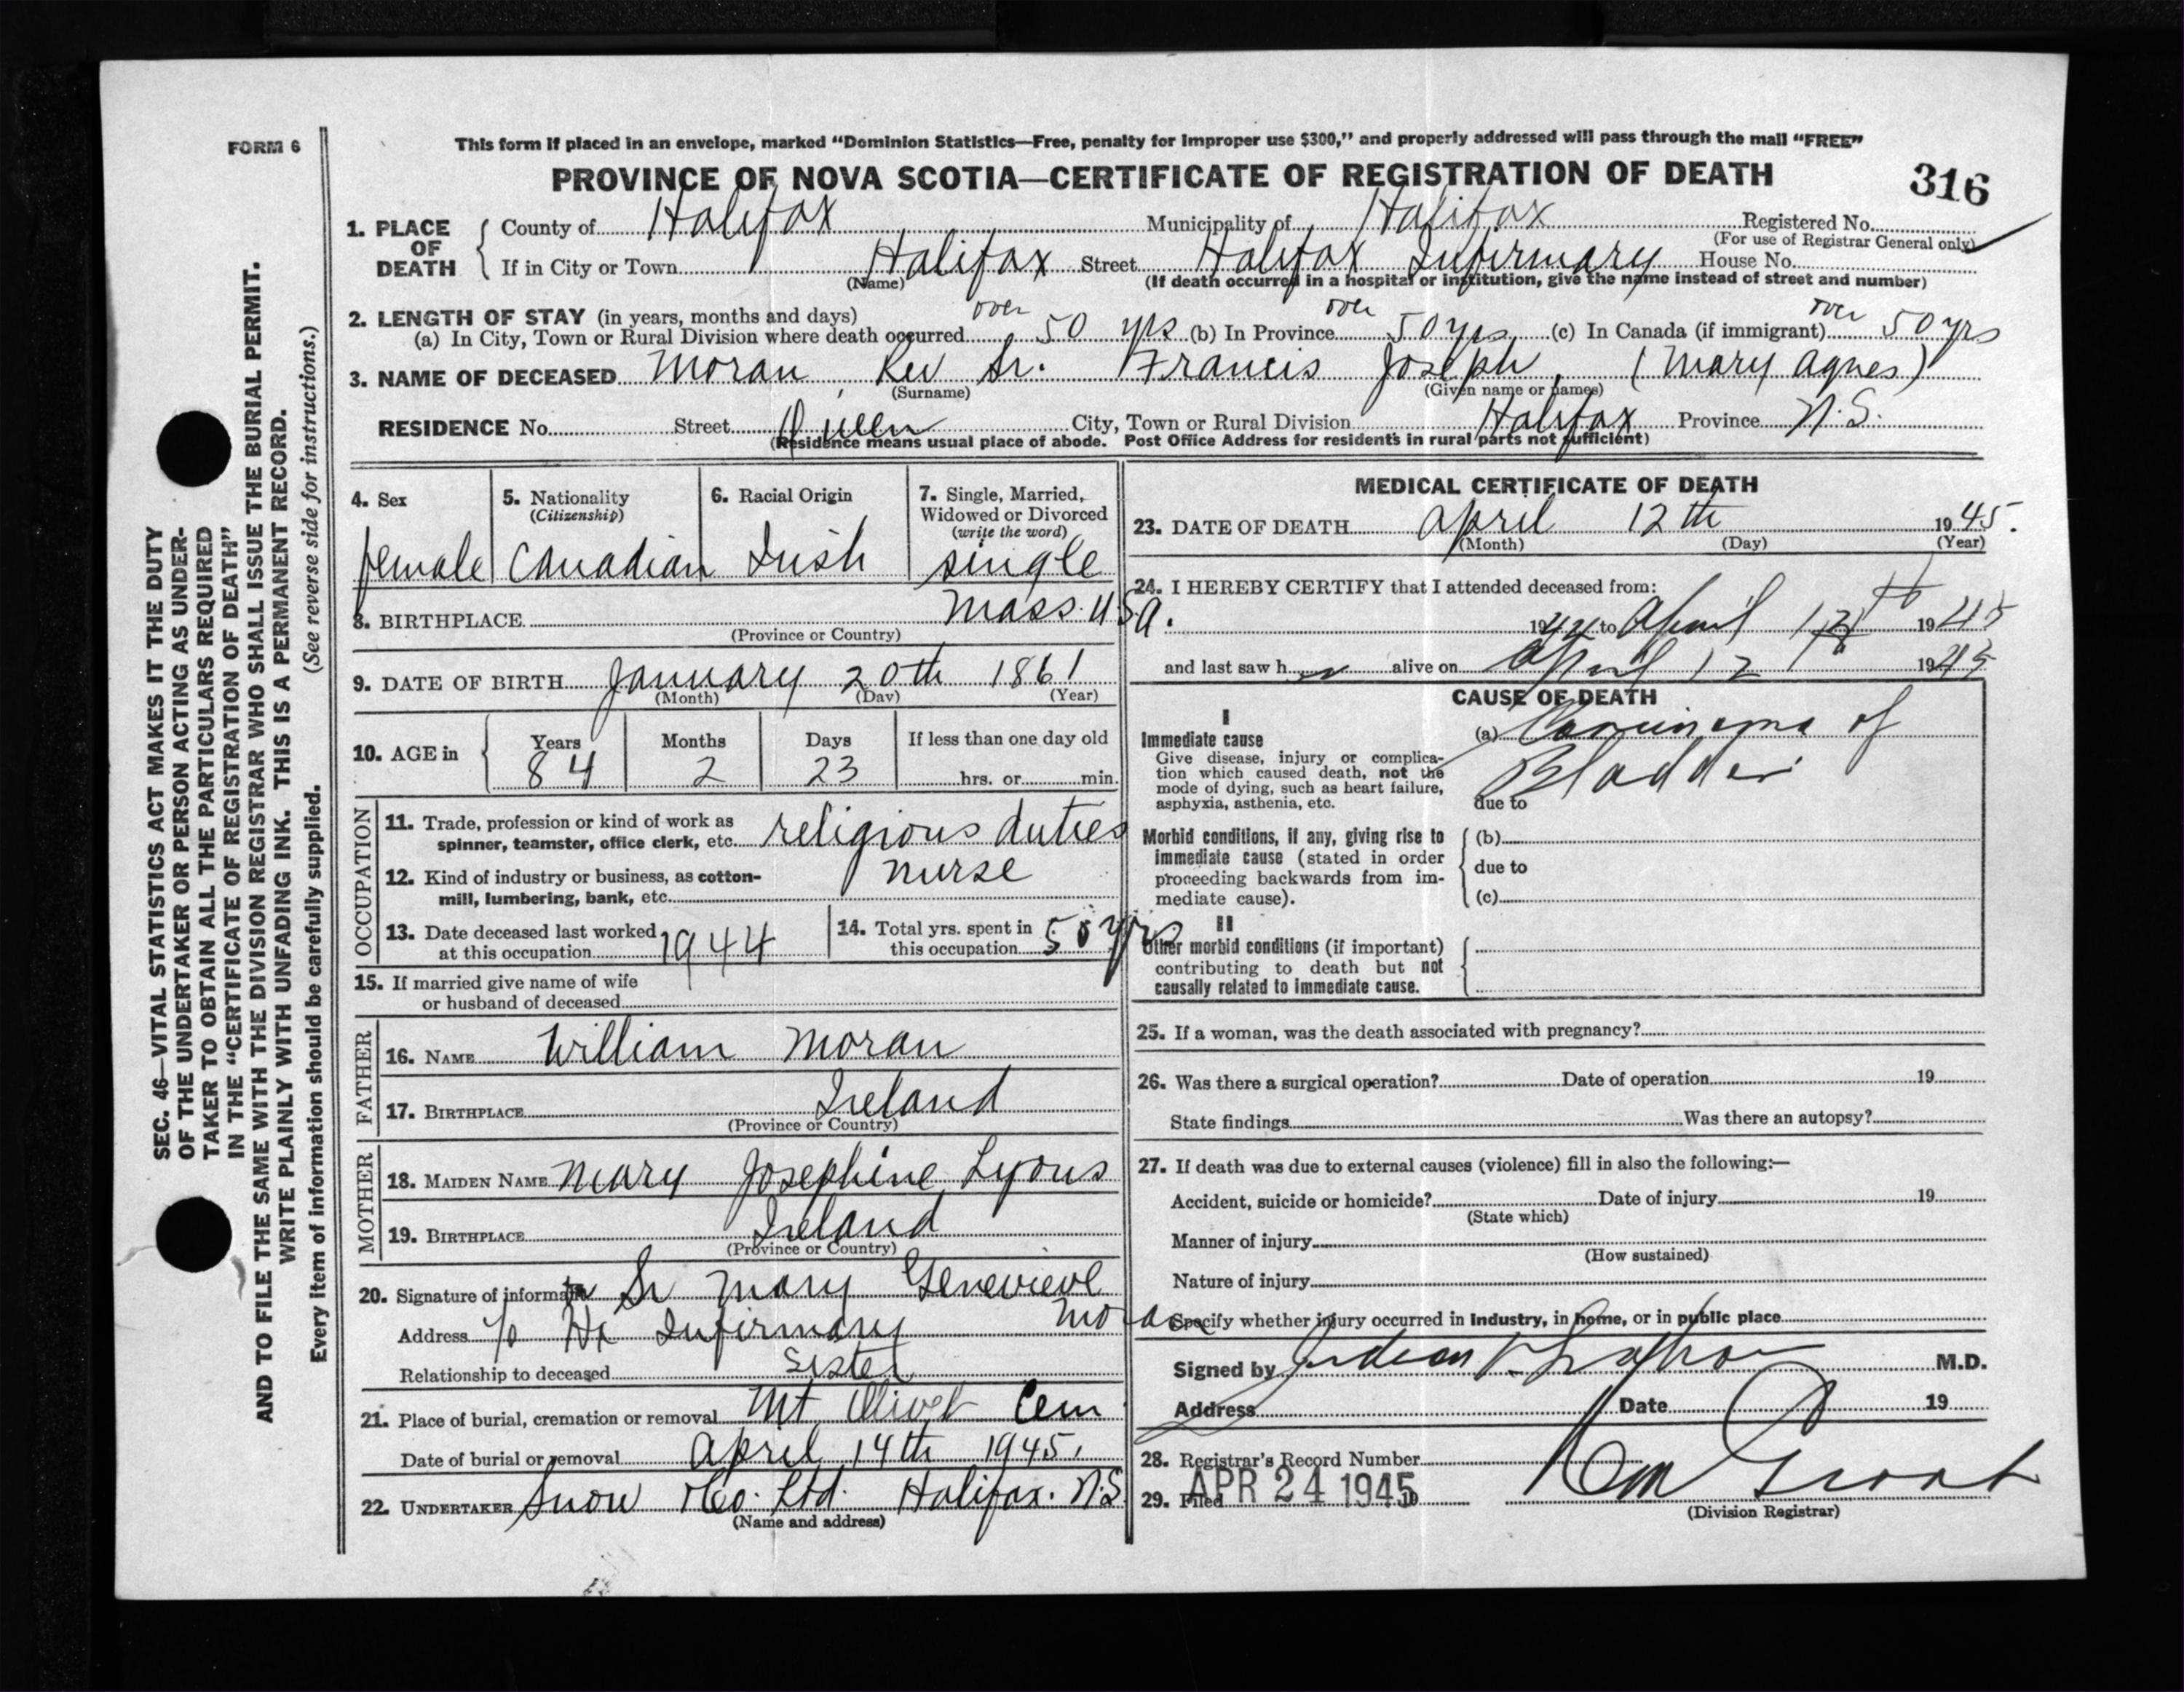 FORM 6
This form if placed in an envelope, marked "Dominion Statistics—Free, penalty for improper use $300," and properly addressed will pass through the mail "FREE"
PROVINCE OF NOVA SCOTIA—CERTIFICATE OF REGISTRATION OF DEATH
316
1. PLACE OF DEATH { County of Halifax Municipality of Halifax Registered No.
(For use of Registrar General only)
If in City or Town Halifax Street Halifax Infirmary House No.
(Name) (If death occurred in a hospital or institution, give the name instead of street and number)
2. LENGTH OF STAY (in years, months and days)
(a) In City, Town or Rural Division where death occurred over 50 yrs (b) In Province over 50 yrs (c) In Canada (if immigrant) over 50 yrs
3. NAME OF DECEASED Moran, Rev Sr. Francis Joseph, (Mary Agnes)
(Surname) (Given name or names)
RESIDENCE No. Street Queen City, Town or Rural Division Halifax Province N.S.
(Residence means usual place of abode. Post Office Address for residents in rural parts not sufficient)
4. Sex
female
5. Nationality
(Citizenship)
Canadian
6. Racial Origin
Irish
7. Single, Married,
Widowed or Divorced
(write the word)
single
8. BIRTHPLACE Mass. U.S.A.
(Province or Country)
9. DATE OF BIRTH January 20th 1861
(Month) (Day) (Year)
10. AGE in { Years Months Days If less than one day old
84 2 23 hrs. or min.
OCCUPATION
11. Trade, profession or kind of work as
spinner, teamster, office clerk, etc. religious duties
12. Kind of industry or business, as cotton-
mill, lumbering, bank, etc. nurse
13. Date deceased last worked
at this occupation 1944
14. Total yrs. spent in
this occupation 50 yrs
15. If married give name of wife
or husband of deceased
FATHER
16. NAME William Moran
17. BIRTHPLACE Ireland
(Province or Country)
MOTHER
18. MAIDEN NAME Mary Josephine Lyons
19. BIRTHPLACE Ireland
(Province or Country)
20. Signature of informant Sr Mary Genevieve Moran
Address c/o Hx Infirmary
Relationship to deceased sister
21. Place of burial, cremation or removal Mt Olivet Cem
Date of burial or removal April 14th 1945.
22. UNDERTAKER Snow & Co. Ltd. Halifax. N.S.
(Name and address)
MEDICAL CERTIFICATE OF DEATH
23. DATE OF DEATH April 12th 1945.
(Month) (Day) (Year)
24. I HEREBY CERTIFY that I attended deceased from:
1944 to April 12th 1945
and last saw h alive on April 12 1945
CAUSE OF DEATH
I
Immediate cause
Give disease, injury or complica-
tion which caused death, not the
mode of dying, such as heart failure,
asphyxia, asthenia, etc.
(a) Carcinoma of
Bladder
due to
Morbid conditions, if any, giving rise to
immediate cause (stated in order
proceeding backwards from im-
mediate cause).
(b)
due to
(c)
II
Other morbid conditions (if important)
contributing to death but not
causally related to immediate cause.
25. If a woman, was the death associated with pregnancy?
26. Was there a surgical operation? Date of operation 19
State findings Was there an autopsy?
27. If death was due to external causes (violence) fill in also the following:—
Accident, suicide or homicide? Date of injury 19
(State which)
Manner of injury
(How sustained)
Nature of injury
Specify whether injury occurred in industry, in home, or in public place
Signed by M.D.
Address Date 19
28. Registrar's Record Number
29. Filed APR 24 1945 19
(Division Registrar)
SEC. 46—VITAL STATISTICS ACT MAKES IT THE DUTY
OF THE UNDERTAKER OR PERSON ACTING AS UNDER-
TAKER TO OBTAIN ALL THE PARTICULARS REQUIRED
IN THE "CERTIFICATE OF REGISTRATION OF DEATH"
AND TO FILE THE SAME WITH THE DIVISION REGISTRAR WHO SHALL ISSUE THE BURIAL PERMIT.
WRITE PLAINLY WITH UNFADING INK. THIS IS A PERMANENT RECORD.
Every item of information should be carefully supplied. (See reverse side for instructions.)